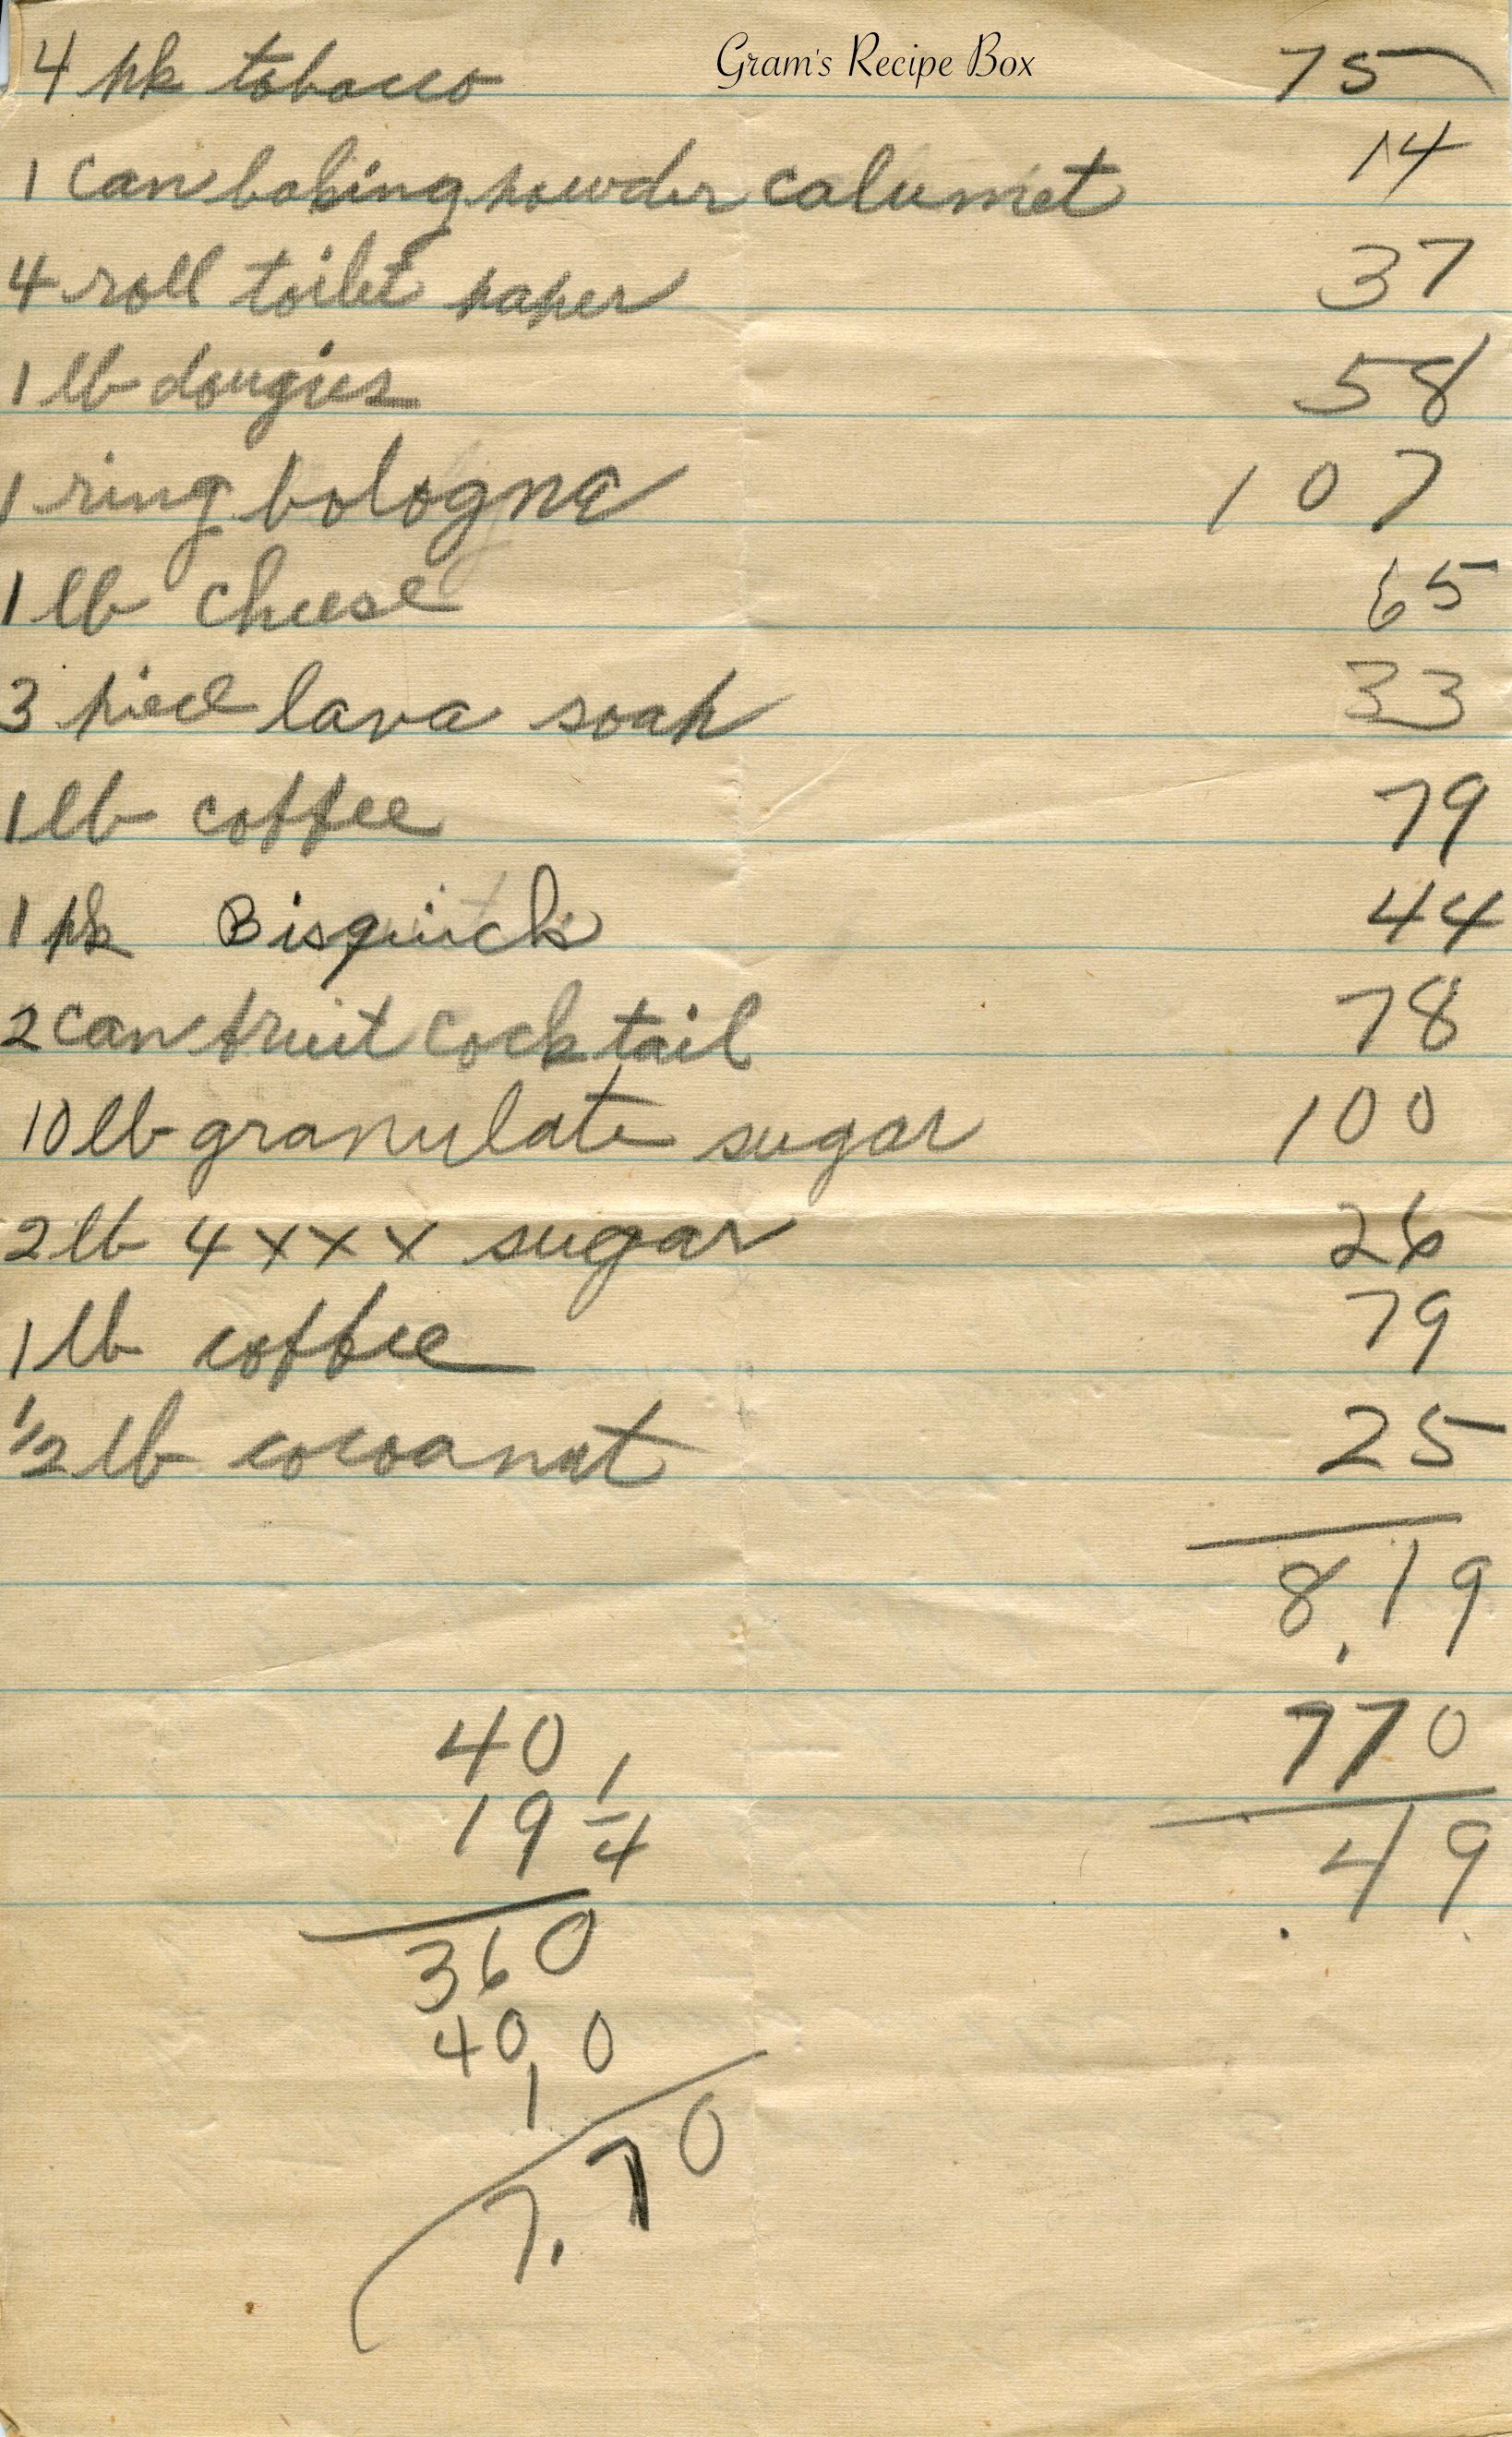 Gram's Recipe Box
4 pk tobacco 75
1 can baking powder calumet 14
4 roll toilet paper 37
1 lb dougies 58
1 ring bologna 107
1 lb cheese 65
3 piece lava soap 33
1 lb coffee 79
1 pk Bisquick 44
2 can fruit cocktail 78
10 lb granulate sugar 100
2 lb 4xxx sugar 26
1 lb coffee 79
1/2 lb cocoanut 25
8.19
770
.49
40
19 1/4
360
40 0
1
7.70